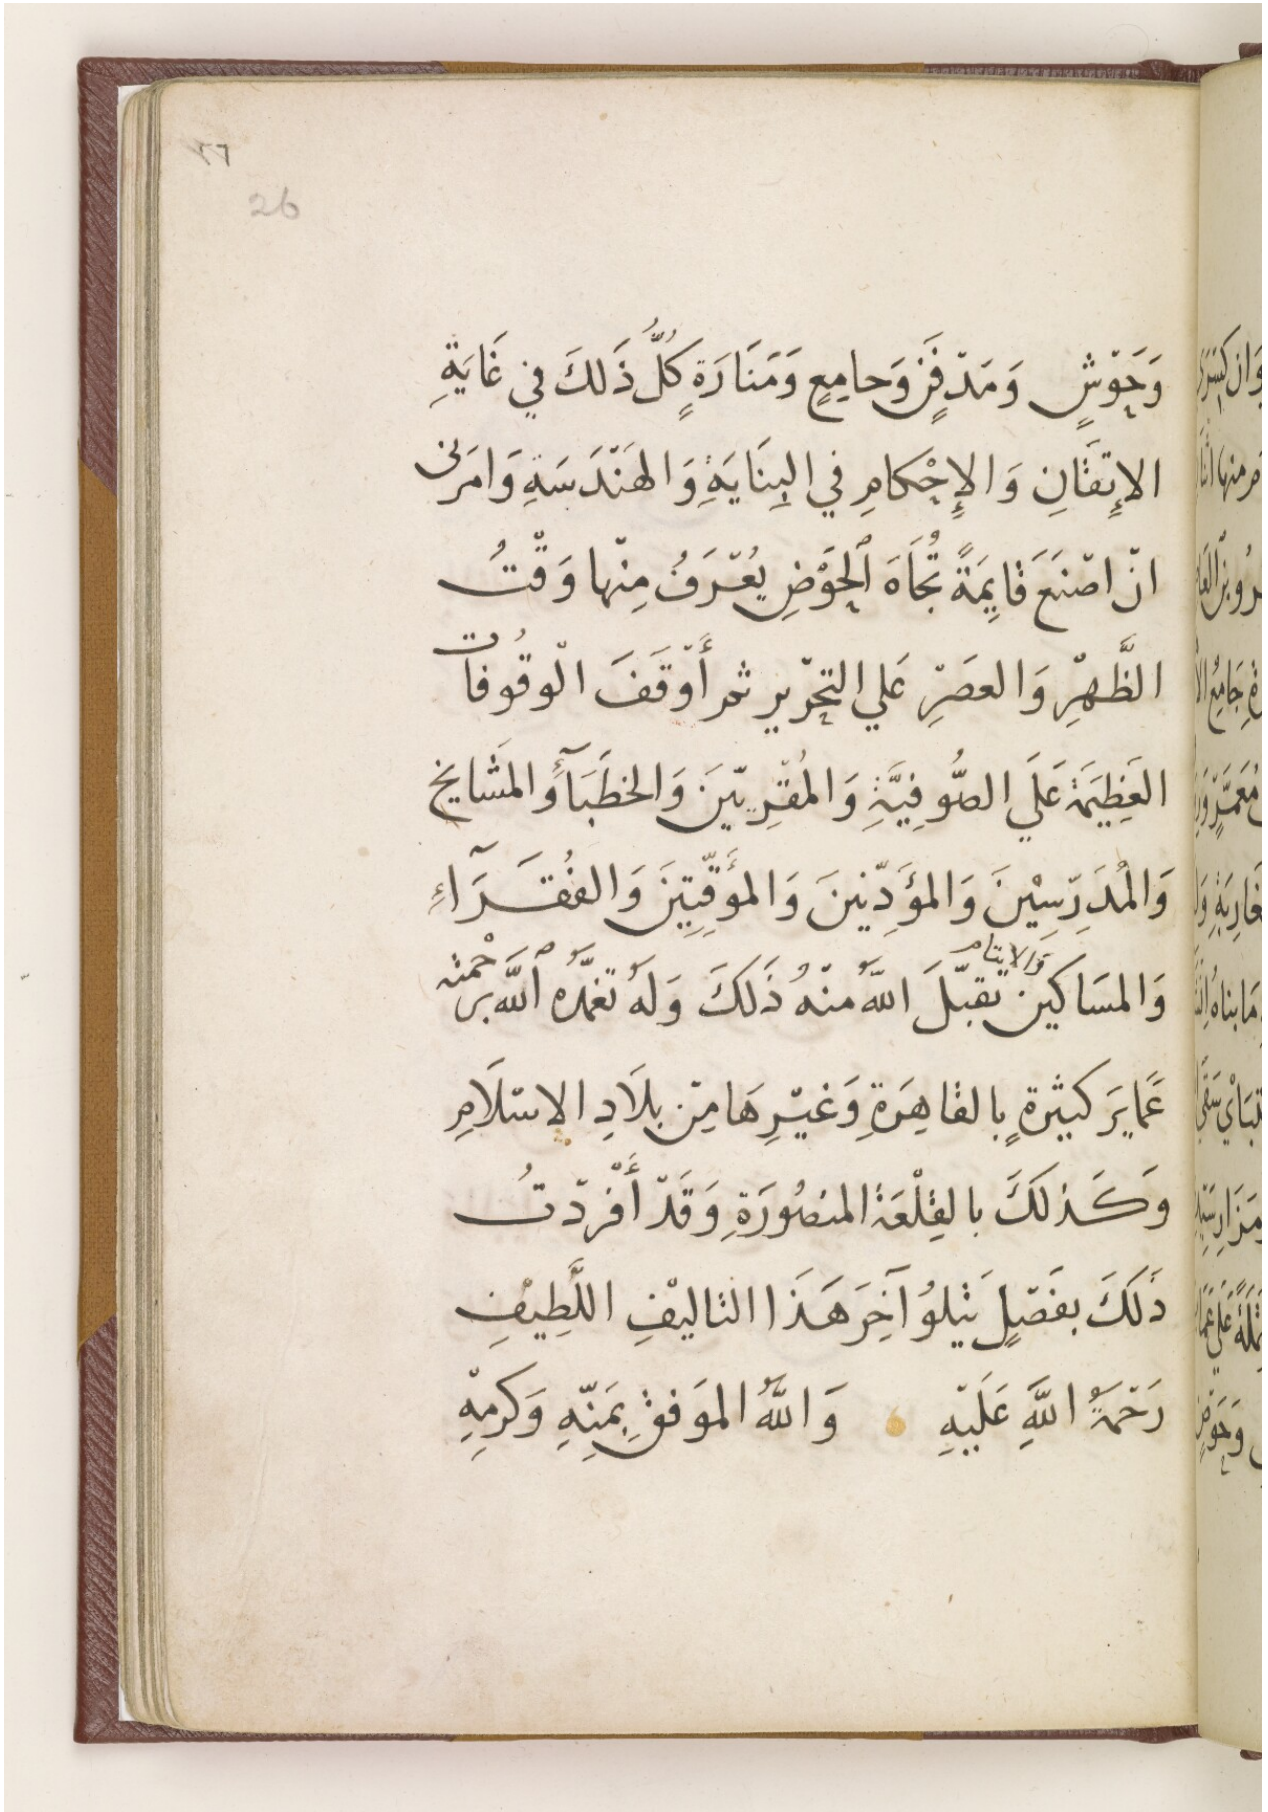 ٢٦
26
وَحَوْشٍ وَمَدْفَنٍ وَجامِعٍ وَمَنَارَةٍ كُلُّ ذَلكَ في غَايَةِ
الإتقَانِ وَالإِحْكامِ في البِنَايَةِ وَالهَنْدَسَةِ وَامَرَني
انْ اصْنَعَ قَايِمَةً تُجَاهَ ٱلحَوْضِ يُعْرَفُ مِنْها وَقْتُ
الظُّهْرِ وَالعَصْرِ عَلي التحْرير ثم أَوْقَفَ الْوقُوفات
العَظِيمَةَ عَلَي الصُّوفِيَّةِ وَالمُقْرِيّينَ وَالخطَبَآءِ وَالمَشَايخ
وَالمُدَرِّسِيْنَ وَالمؤَذِّنينَ وَالمؤَقِّتِينَ وَالفُقَرَآءِ
وَالمسَاكين وَالايتام تقبّلَ اللَّهُ منْهُ ذَلكَ وَلَهُ تغمَّدَهُ ٱللَّه برحْمته
عَمَايرَ كثيْرةٍ بالقاهِرَةِ وَغيْرِهَا مِنْ بلَادِ الاسْلَامِ
وَكَذلكَ بالقِلْعَةِ المنصُورَةِ وَقَدْ أَفْردْتُ
ذَلكَ بفَصْلٍ يَتْلوُ آخِرَ هَذَا التاليْفِ اللَّطِيْفِ
رَحْمَةُ اللَّهِ عَلَيْهِ وَاللَّهُ الموَفقُ بِمَنِّهِ وَكرمِهِ